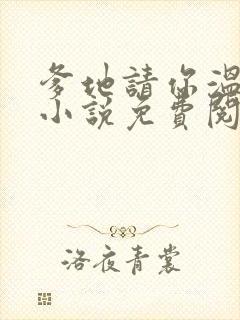 爹地請你溫
小說免費閱
洛夜青裳